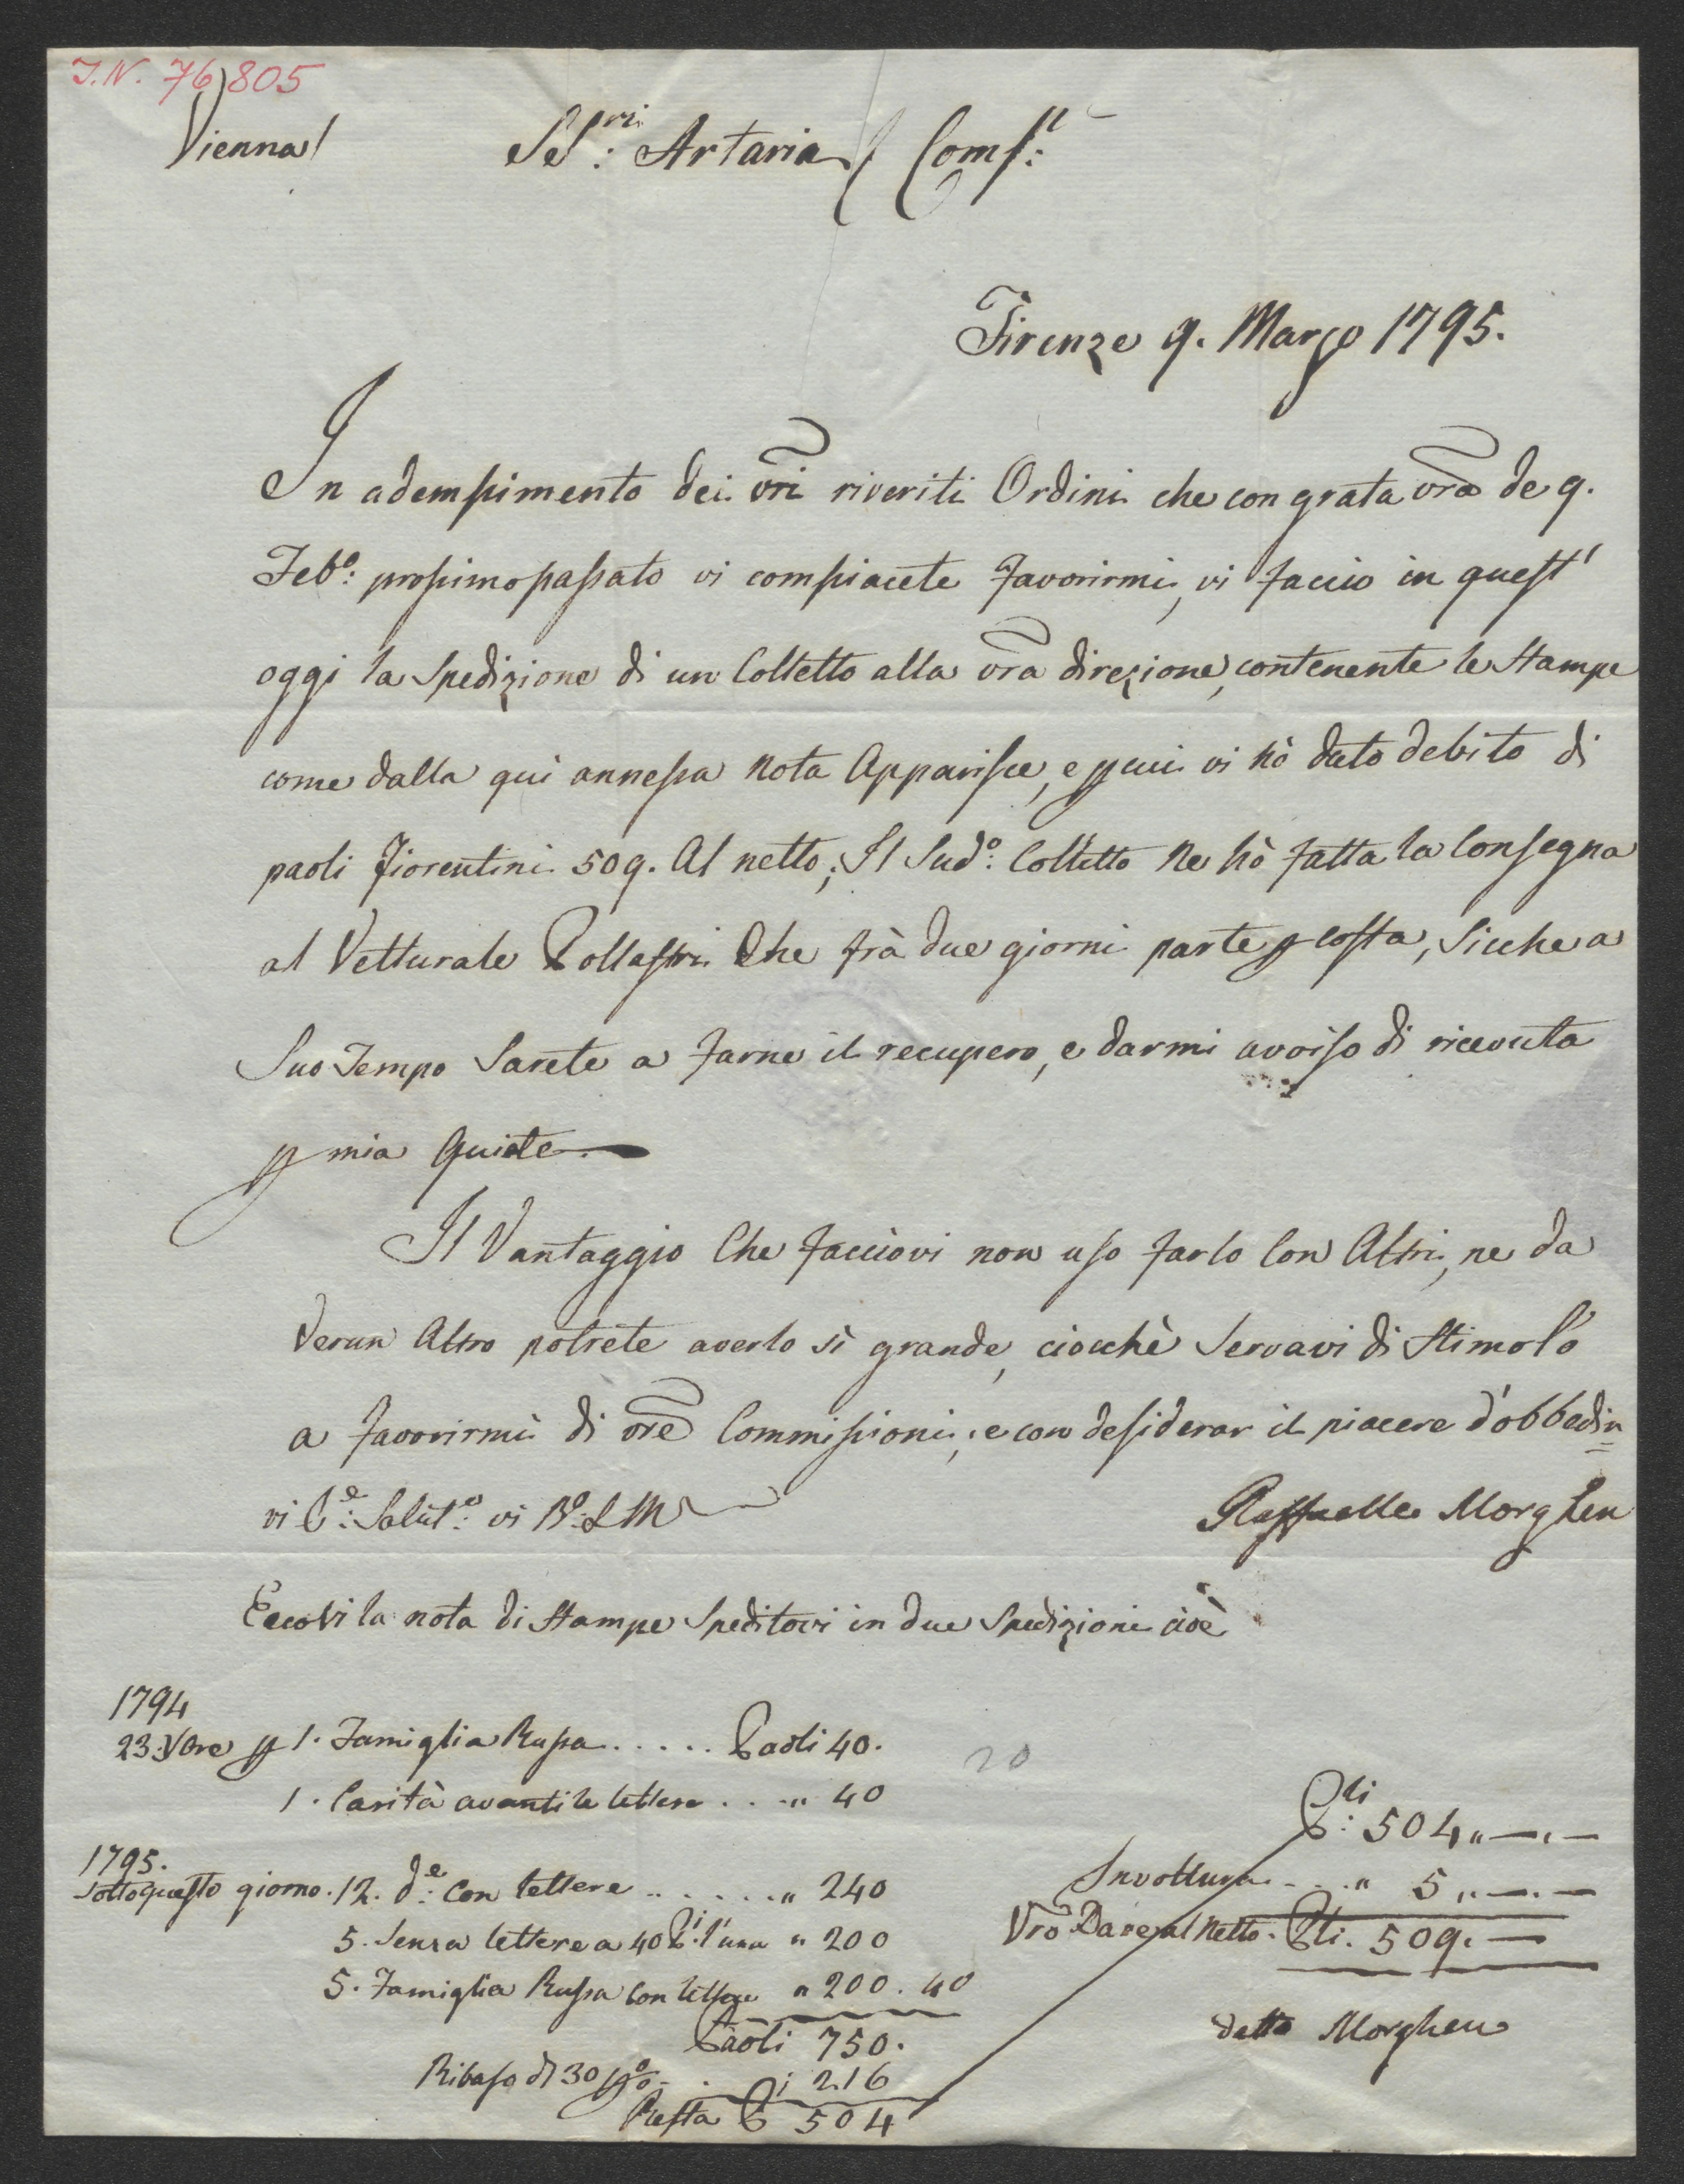 J.N. 76,805
Vienna / SS.ri: Artaria, e Comp.
Firenze 9. Marzo 1795.
In adempimento dei vri riveriti Ordini che con grata vra de 9.
Feb.o: prossimo passato vi compiacete favorirmi, vi faccio in quest'
oggi la Spedizione di un Colletto alla vra direzione, contenente le Stampe
come dalla quì annessa Nota Apparisce, e p cui vi hò dato debito di
paoli fiorentini 509. Al netto; Il Sud.o: Colletto Ne hò fatta la Consegna
al Vetturale Pollastri Che frà due giorni parte p costà, Sicche a
Suo Tempo Sarete a farne il recupero, e darmi avviso di ricevuta
p mia Quiete.
Il Vantaggio Che facciovi non uso farlo Con Altri, ne da
Verun Altro potrete averlo sì grande, ciocchè Servavi di Stimolo
a favorirmi di vre Commissioni; e con desiderar il piacere d'obbedir=
vi e Salut.o: vi B: L M
Raffaelle Morghen
EccoVi la nota di Stampe Speditovi in due Spedizioni cioè
1794
23: Xbre p 1. Famiglia Russa . . . . . Paoli 40.
20
1. Carità avanti le lettere . . . " 40
1795.
Sotto questo giorno. 12. d.e: Con lettere . . . . . . " 240
5. Senza lettere a 40 P.i l'una " 200
5. Famiglia Russa Con lettere " 200. 40
Paoli 750.
Ribasso di 30 p% . . 216
Resta P 504
P.li: 504 " — " —
Involtura . . . " 5 " — . —
Vro Dare al Netto. Pli. 509. —
detto Morghen